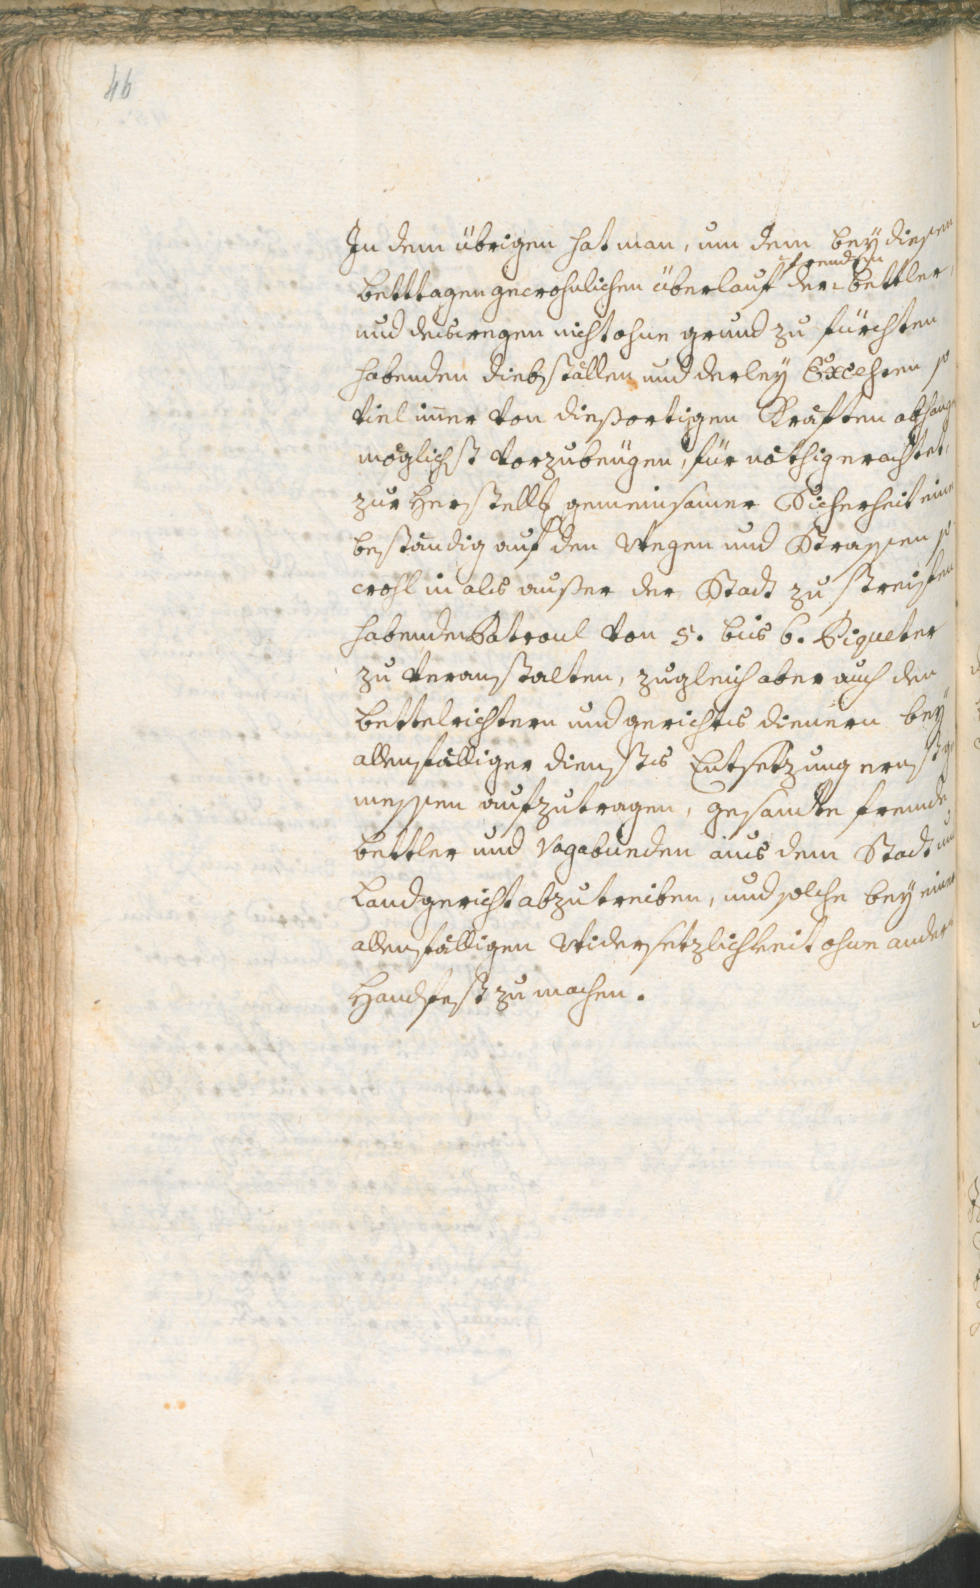 46
In dem übrigen hat man, um dem beӱ diesen
fremden
betttagen gewohnlichen überlauf der bettler,
und deswegen nicht ohne grund zu fürchten
habenden diebställen und derleӱ Excessen so
viel im̄er von dießortigen Kräften abhang
möglichst vorzubeugen, für nöthig erachtet,
zur Herstellg gemeinsamer Sicherheit eine
beständig auf den Wegen und Strassen so
wohl in als außer der Stadt zu streifen
habende Patroul von 5. bis 6. Piqueter
zu veranstalten, zugleich aber auch den
bettelrichtern und gerichts dienern beӱ
allenfälliger dienstes Entsetzung ernstge
messen aufzutragen, gesamte fremde
bettler und Vagabunden aus dem Stadt und
Landgericht abzutreiben, und solche beӱ einer
allenfälligen Widersetzlichkeit ohne andern
Handfest zu machen.